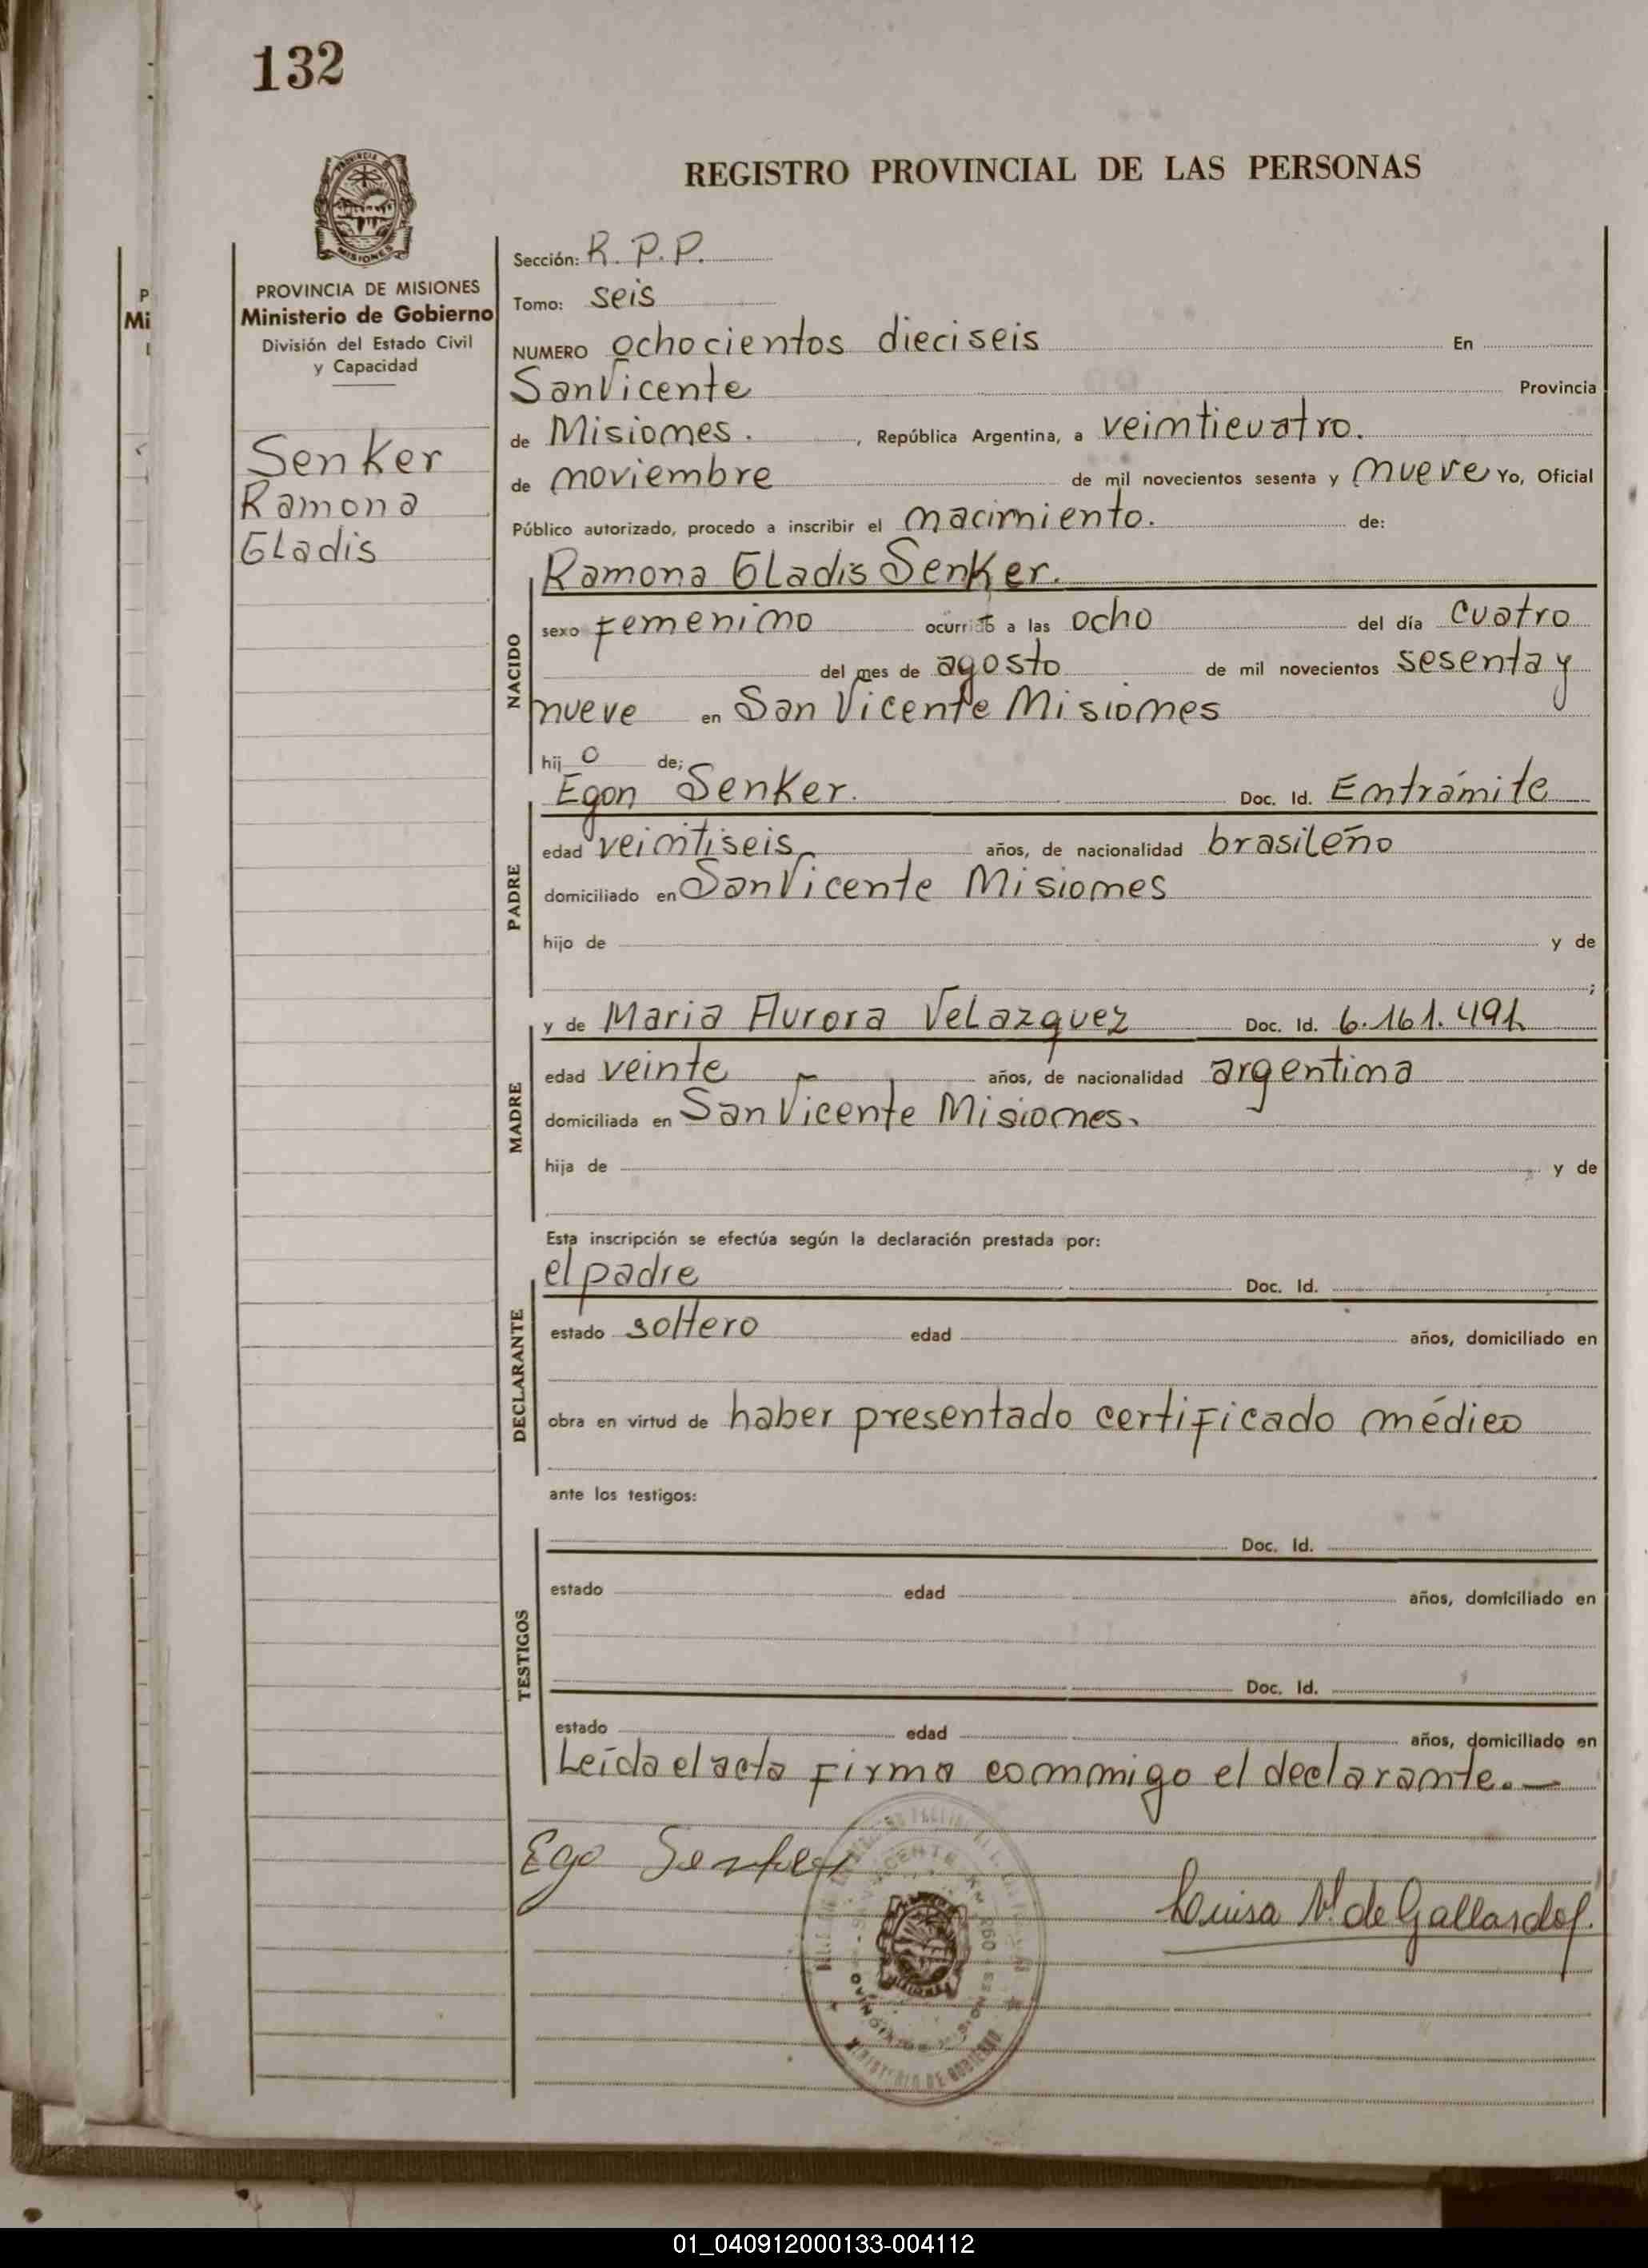 132
REGISTRO PROVINCIAL DE LAS PERSONAS
PROVINCIA DE MISIONES
Ministerio de Gobierno
División del Estado Civil
y Capacidad
Senker
Ramona
Gladis
Sección: R. P. P.
Tomo: seis
NUMERO ochocientos dieciseis En
San Vicente Provincia
de Misiones. , República Argentina, a veinticuatro.
de noviembre de mil novecientos sesenta y nueve Yo, Oficial
Público autorizado, procedo a inscribir el nacimiento. de:
NACIDO
Ramona Gladis Senker.
sexo femenino ocurrido a las ocho del día cuatro
del mes de agosto de mil novecientos sesenta y
nueve en San Vicente Misiones
hij o de;
PADRE
Egon Senker. Doc. Id. En trámite
edad veintiseis años, de nacionalidad brasileño
domiciliado en San Vicente Misiones
hijo de y de
;
MADRE
y de Maria Aurora Velazquez Doc. Id. 6.161.491
edad veinte años, de nacionalidad argentina
domiciliada en San Vicente Misiones.
hija de y de
Esta inscripción se efectúa según la declaración prestada por:
DECLARANTE
el padre Doc. Id.
estado soltero edad años, domiciliado en
obra en virtud de haber presentado certificado médico
ante los testigos:
TESTIGOS
Doc. Id.
estado edad años, domiciliado en
Doc. Id.
estado edad años, domiciliado en
Leída el acta firma conmigo el declarante.—
Ego Senker
Luisa M. de Gallardo
MINISTERIO DE GOBIERNO
01_040912000133-004112